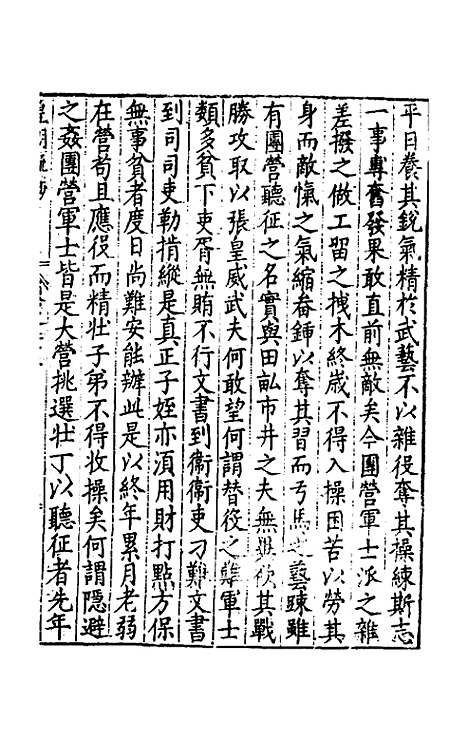 平日養其銳氣精於武藝不以雜役奪其操練斯志
一事專奮發果敢直前無敵矣今團營軍士派之雜
差撥之做工留之拽木終歲不得入操困苦以勞其
身而敵愾之氣縮畚鍤以奪其習而弓馬之藝踈雖
有團營聽征之名實與田畝市井之夫無異欲其戰
勝攻取以張皇威武夫何敢望何謂替役之弊軍士
類多貧下吏胥無賄不行文書到衛衛吏刁難文書
到司司吏勒揹縱是真正子姪亦湏用財打點方保
無事貧者度日尚難安能辦此是以終年累月老弱
在營苟且應役而精壯子弟不得收操矣何謂隱避
之姦團營軍士皆是大營挑選壯丁以聽征者先年
皇明